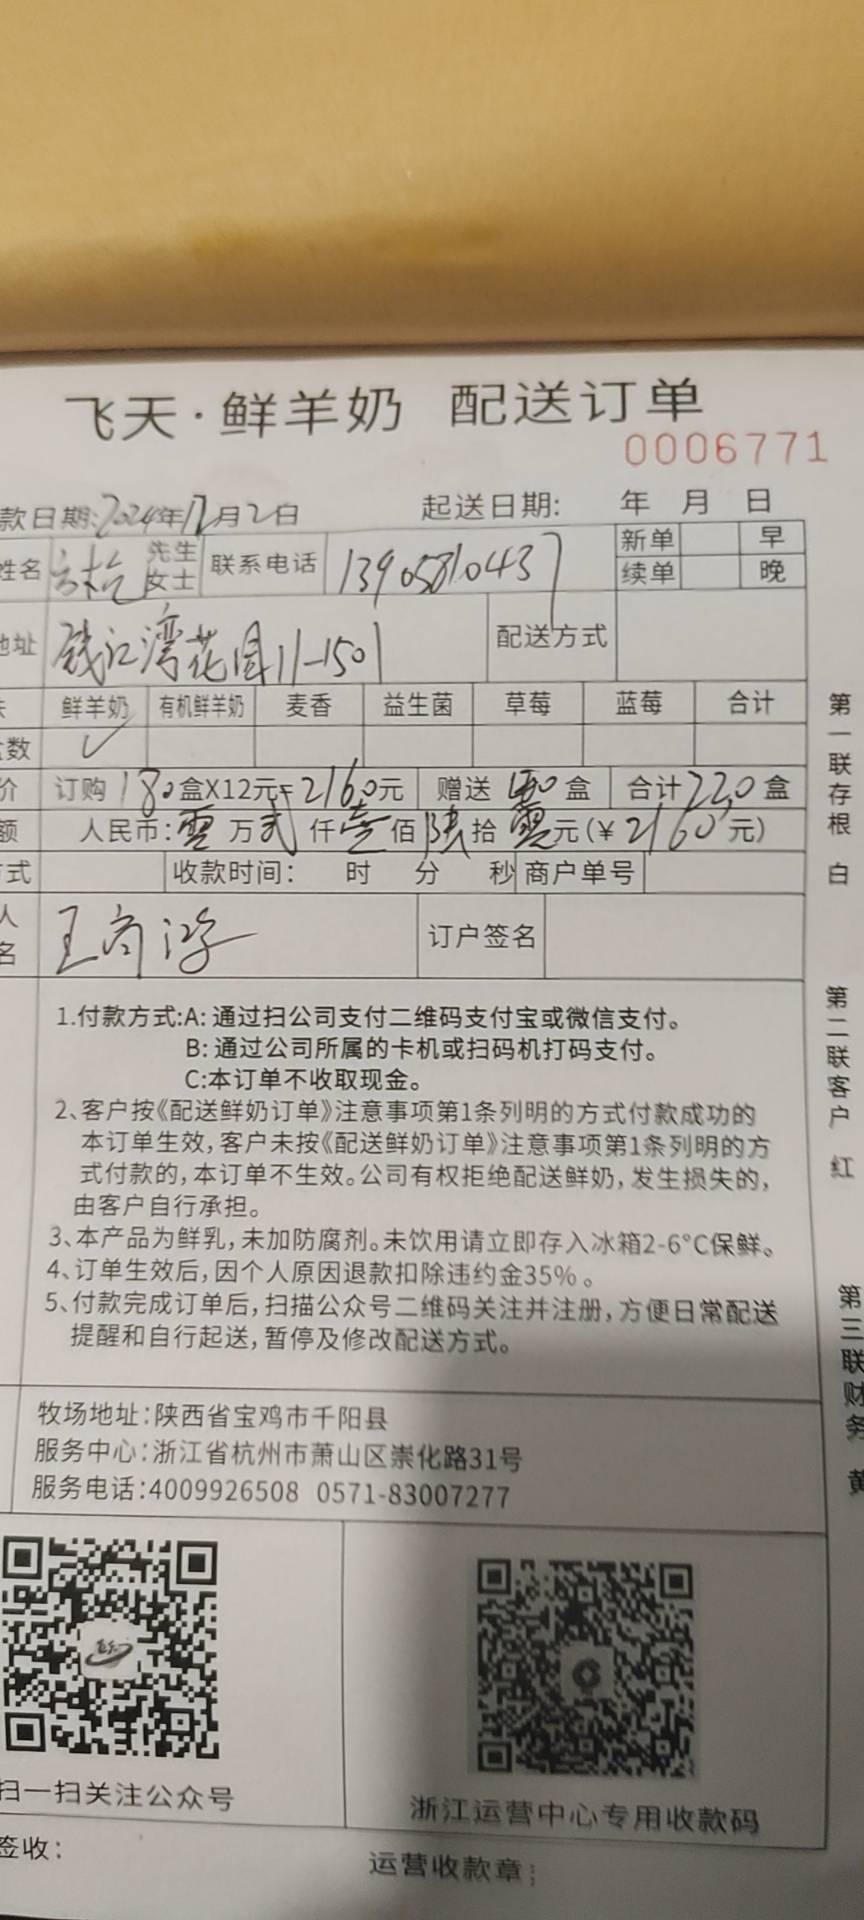 飞天·鲜羊奶 配送订单
0006771
款日期:2024年12月2日 起送日期: 年 月 日
姓名 先生 女士 联系电话 13905810437 新单 早
续单 晚
地址 钱江湾花园11-1501 配送方式
鲜羊奶 有机鲜羊奶 麦香 益生菌 草莓 蓝莓 合计
盒数 ✓
价 订购180盒X12元=2160元 赠送40盒 合计220盒
额 人民币:零万贰仟壹佰陆拾零元(¥2160元)
方式 收款时间: 时 分 秒 商户单号
人
名 订户签名
1.付款方式:A:通过扫公司支付二维码支付宝或微信支付。
B:通过公司所属的卡机或扫码机打码支付。
C:本订单不收取现金。
2、客户按《配送鲜奶订单》注意事项第1条列明的方式付款成功的
本订单生效,客户未按《配送鲜奶订单》注意事项第1条列明的方
式付款的,本订单不生效。公司有权拒绝配送鲜奶,发生损失的,
由客户自行承担。
3、本产品为鲜乳,未加防腐剂。未饮用请立即存入冰箱2-6°C保鲜。
4、订单生效后,因个人原因退款扣除违约金35%。
5、付款完成订单后,扫描公众号二维码关注并注册,方便日常配送
提醒和自行起送,暂停及修改配送方式。
牧场地址:陕西省宝鸡市千阳县
服务中心:浙江省杭州市萧山区崇化路31号
服务电话:4009926508 0571-83007277
扫一扫关注公众号
浙江运营中心专用收款码
签收:
运营收款章:
第一联存根 白
第二联客户 红
第三联财务 黄